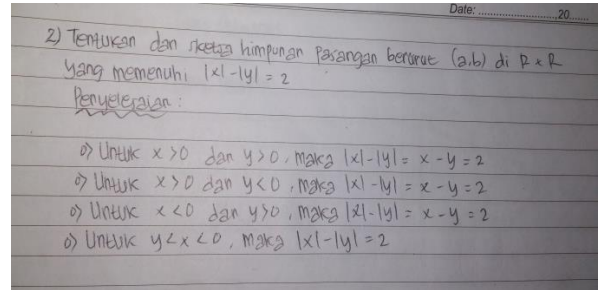 Date: ..............................20......
2) Tentukan dan sketsa himpunan pasangan berurut (a,b) di R x R
yang memenuhi |x|-|y| = 2
Penyelesaian :
o) Untuk x >0 dan y >0, maka |x|-|y| = x - y = 2
o) Untuk x >0 dan y <0, maka |x|-|y| = x - y = 2
o) Untuk x <0 dan y >0, maka |x|-|y| = x - y = 2
o) Untuk y < x < 0, maka |x|-|y| = 2